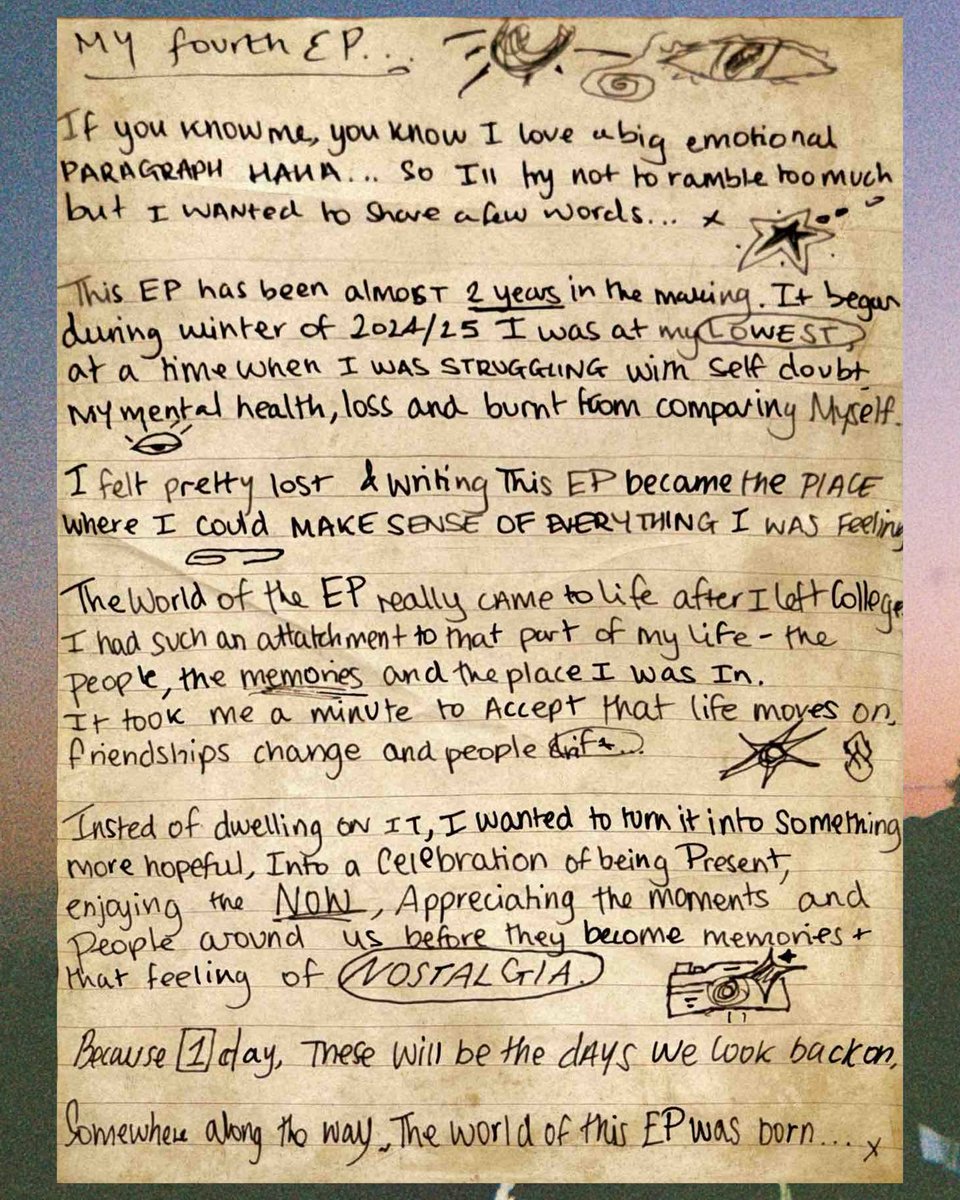 MY fourth EP...
If you know me, you know I love a big emotional
PARAGRAPH HAHA... So I'll try not to ramble too much
but I WANTED to share a few words... x
This EP has been almOST 2 years in the making. It began
during winter of 2024/25 I was at my LOWEST,
at a time when I WAS STRUGGLING with self doubt
MY mental health, loss and burnt from comparing Myself.
I felt pretty lost & writing This EP became the PlACE
where I could MAKE SENSE OF EVERYTHING I WAS Feeling
The World of the EP really CAME to life after I left College
I had such an attatchment to that part of my life - the
people, the memories and the place I was In.
It took me a minute to Accept that life moves on,
friendships change and people drift...
Insted of dwelling ON IT, I wanted to turn it into Something
more hopeful, Into a Celebration of being Present,
enjoying the NOW, Appreciating the moments and
People around us before they become memories +
that feeling of NOSTALGIA.
Because 1 day, These will be the dAYS we look back on,
Somewhere along the way, The world of this EP was born.... x